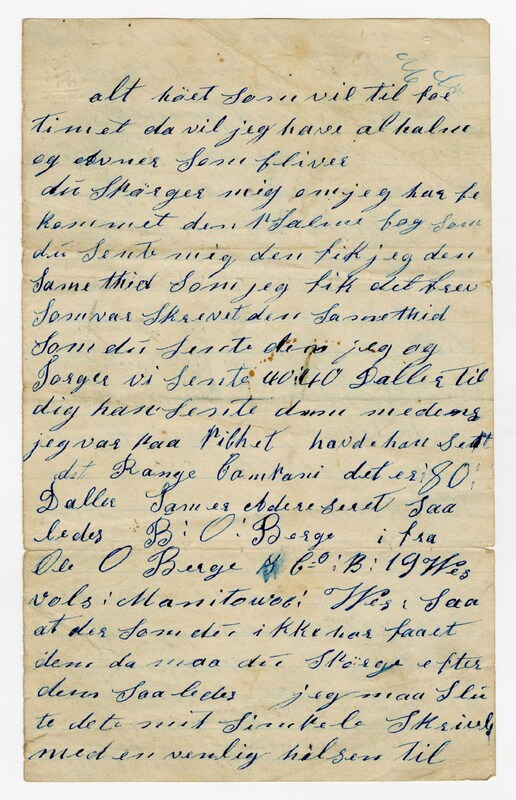 alt höet som vil til foe
timet da vil jeg have al halm
og avner som bliver
du skörger mig om jeg har be
kommet den Salme bog som
du sente mig den fik jeg den
samethid som jeg fik det brev
som var skrevet den samethid
som du sente dem jeg og
Torger vi sente 40:40 Daller til
dig han sente dem medens
jeg var paa havde han sent
det Range Compani det er :80:
Daller Som er Adereseret saa
ledes B: O: Berge i fra
Ole O Berge & Co: B: 19 Wes
vols: Manitowoc: Wes: Saa
at der som du ikke har faaet
dem da maa du Skörge efter
dem saaledes jeg maa slu
te dete mit Simpele Skrivels
med en venlig hilsen til